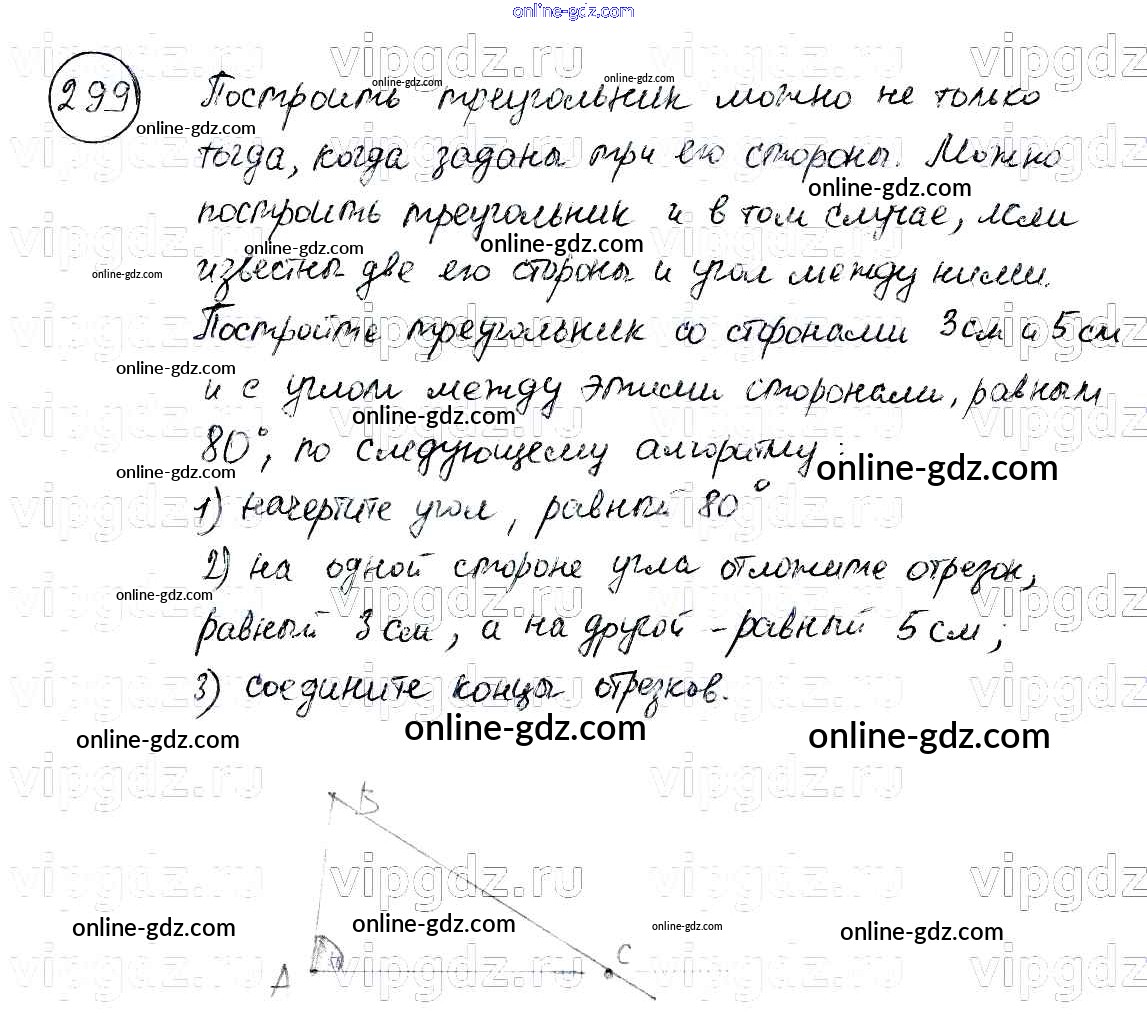 online-gdz.com
299 Построить треугольник можно не только
тогда, когда заданы три его стороны. Можно
построить треугольник и в том случае, если
известны две его стороны и угол между ними.
Постройте треугольник со сторонами 3см и 5см
и с углом между этими сторонами, равным
80°, по следующему алгоритму:
1) начертите угол, равный 80°
2) на одной стороне угла отложите отрезок,
равный 3см, а на другой - равный 5см;
3) соедините концы отрезков.
B
A
C
vipgdz.ru
online-gdz.com